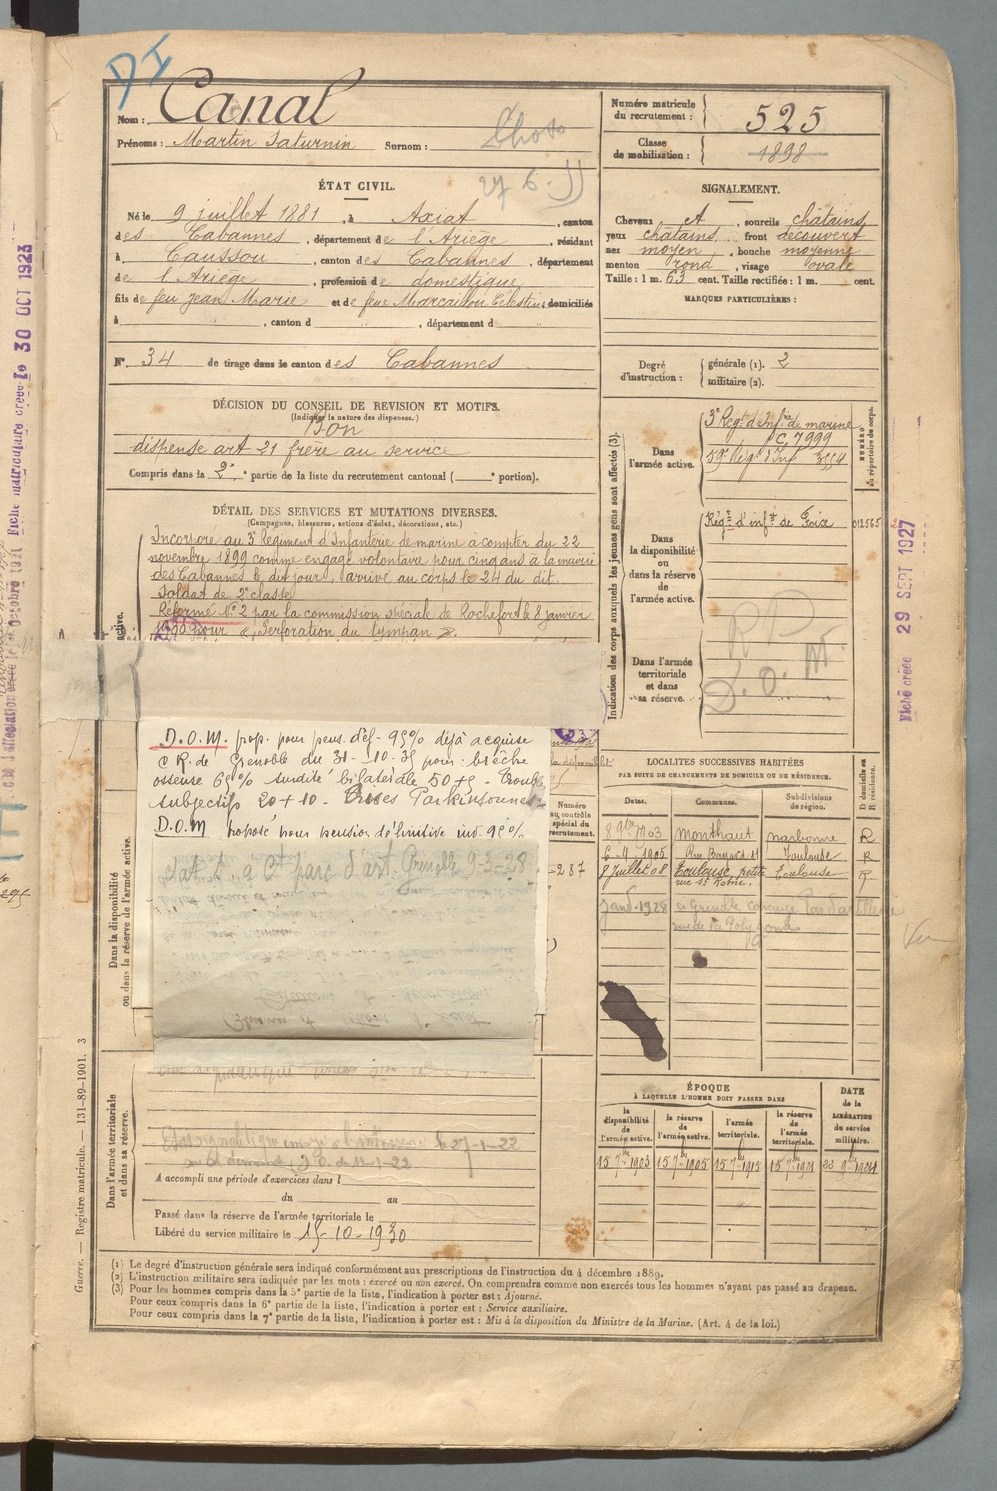 DI
Nom : Canal
Prénoms : Martin Saturnin Surnom :
Photo
27 6
ÉTAT CIVIL.
Né le 9 juillet 1881, à Axiat, canton
des Cabannes, département de l'Ariège, résidant
à Caussou, canton des Cabannes, département
de l'Ariège, profession de domestique
fils de feu Jean Marie et de feue Marcaillou Célestine domiciliés
à " , canton d " , département d "
N° 34 de tirage dans le canton des Cabannes
DÉCISION DU CONSEIL DE REVISION ET MOTIFS.
(Indiquer la nature des dispenses.)
Bon
dispense art 21 frère au service
Compris dans la 2e partie de la liste du recrutement cantonal ( portion).
DÉTAIL DES SERVICES ET MUTATIONS DIVERSES.
(Campagnes, blessures, actions d'éclat, décorations, etc.)
Incorporé au 3e Régiment d'Infanterie de marine à compter du 22
novembre 1899 comme engagé volontaire pour cinq ans à la mairie
des Cabannes le dit jour, arrivé au corps le 24 du dit.
Soldat de 2e classe
Réformé N° 2 par la commission spéciale de Rochefort le 8 janvier
pour « Perforation du tympan ».
D.O.M. prop. pour pens. déf. 95% déjà acquise
C R. de Grenoble du 31-10-35 pour : brèche
osseuse 65% surdité bilatérale 50+5 - Troubles
subjectifs 20+10 - Crises Parkinsonnes
D.O.M proposé pour pension définitive inv. 95%
parc d'art. Grenoble 9-3-28
27-1-22
A accompli une période d'exercices dans l
du au
Passé dans la réserve de l'armée territoriale le
Libéré du service militaire le 15-10-1930
Dans la disponibilité
ou dans la réserve de l'armée active.
Dans l'armée territoriale
et dans sa réserve.
Numéro
au contrôle
spécial du
recrutement.
287
Numéro matricule
du recrutement : 525
Classe
de mobilisation : 1898
SIGNALEMENT.
Cheveux et, sourcils châtains
yeux châtains, front découvert
nez moyen, bouche moyenne
menton rond, visage ovale
Taille : 1 m. 63 cent. Taille rectifiée : 1 m. cent.
MARQUES PARTICULIÈRES :
Degré
d'instruction :
générale (1). 2
militaire (2).
Indication des corps auxquels les jeunes gens sont affectés (3).
NUMÉRO
au répertoire du corps.
Dans
l'armée active.
3e Régt d'Infrie de marine
C, 7999
59e Régt d'Inf 3554
Dans
la disponibilité
ou
dans la réserve
de
l'armée active.
Régt d'infie de Foix 012565
Dans l'armée
territoriale
et dans
sa réserve.
R P
D. O. M.
LOCALITÉS SUCCESSIVES HABITÉES
PAR SUITE DE CHANGEMENTS DE DOMICILE OU DE RÉSIDENCE.
D domicile ou
R résidence.
Dates. Communes. Subdivisions
de région.
8 9bre 1903 Monthaut Narbonne R
6-4 1905 Rue Bayard 11 Toulouse R
9 juillet 08 Toulouse, petite Toulouse R
rue St Rome.
janv. 1928 à Grenoble concierge Parc d'artillerie
rue de la Polygone
Vu
ÉPOQUE
À LAQUELLE L'HOMME DOIT PASSER DANS
DATE
de la
LIBÉRATION
du service
militaire.
la
disponibilité
de
l'armée active.
la réserve
de
l'armée active.
l'armée
territoriale.
la réserve
de
l'armée
territoriale.
15 7bre 1903 15 7bre 1905 15 7bre 1915 15 7bre 1921 22 9bre 1924
(1) Le degré d'instruction générale sera indiqué conformément aux prescriptions de l'instruction du 4 décembre 1889.
(2) L'instruction militaire sera indiquée par les mots : exercé ou non exercé. On comprendra comme non exercés tous les hommes n'ayant pas passé au drapeau.
(3) Pour les hommes compris dans la 5e partie de la liste, l'indication à porter est : Ajourné.
Pour ceux compris dans la 6e partie de la liste, l'indication à porter est : Service auxiliaire.
Pour ceux compris dans la 7e partie de la liste, l'indication à porter est : Mis à la disposition du Ministre de la Marine. (Art. 4 de la loi.)
Guerre. — Registre matricule. — 131-89-1901. 3
Fiche matriculaire créée le 30 OCT 1923
Fiche créée 29 SEPT 1927
295